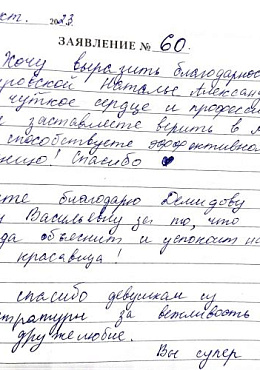 кт. 2023.
ЗАЯВЛЕНИЕ № 60.
Хочу выразить благодарнос
ровской Наталье Алексан
чуткое сердце и професси
заставляете верить в л
способствуете эффективно
нию! Спасибо
те благодарю Демидову
Васильевну за то, что
да объяснит и успокоит на
красавица!
спасибо девушкам су
тратуры за вежливость
дружелюбие.
Вы супер